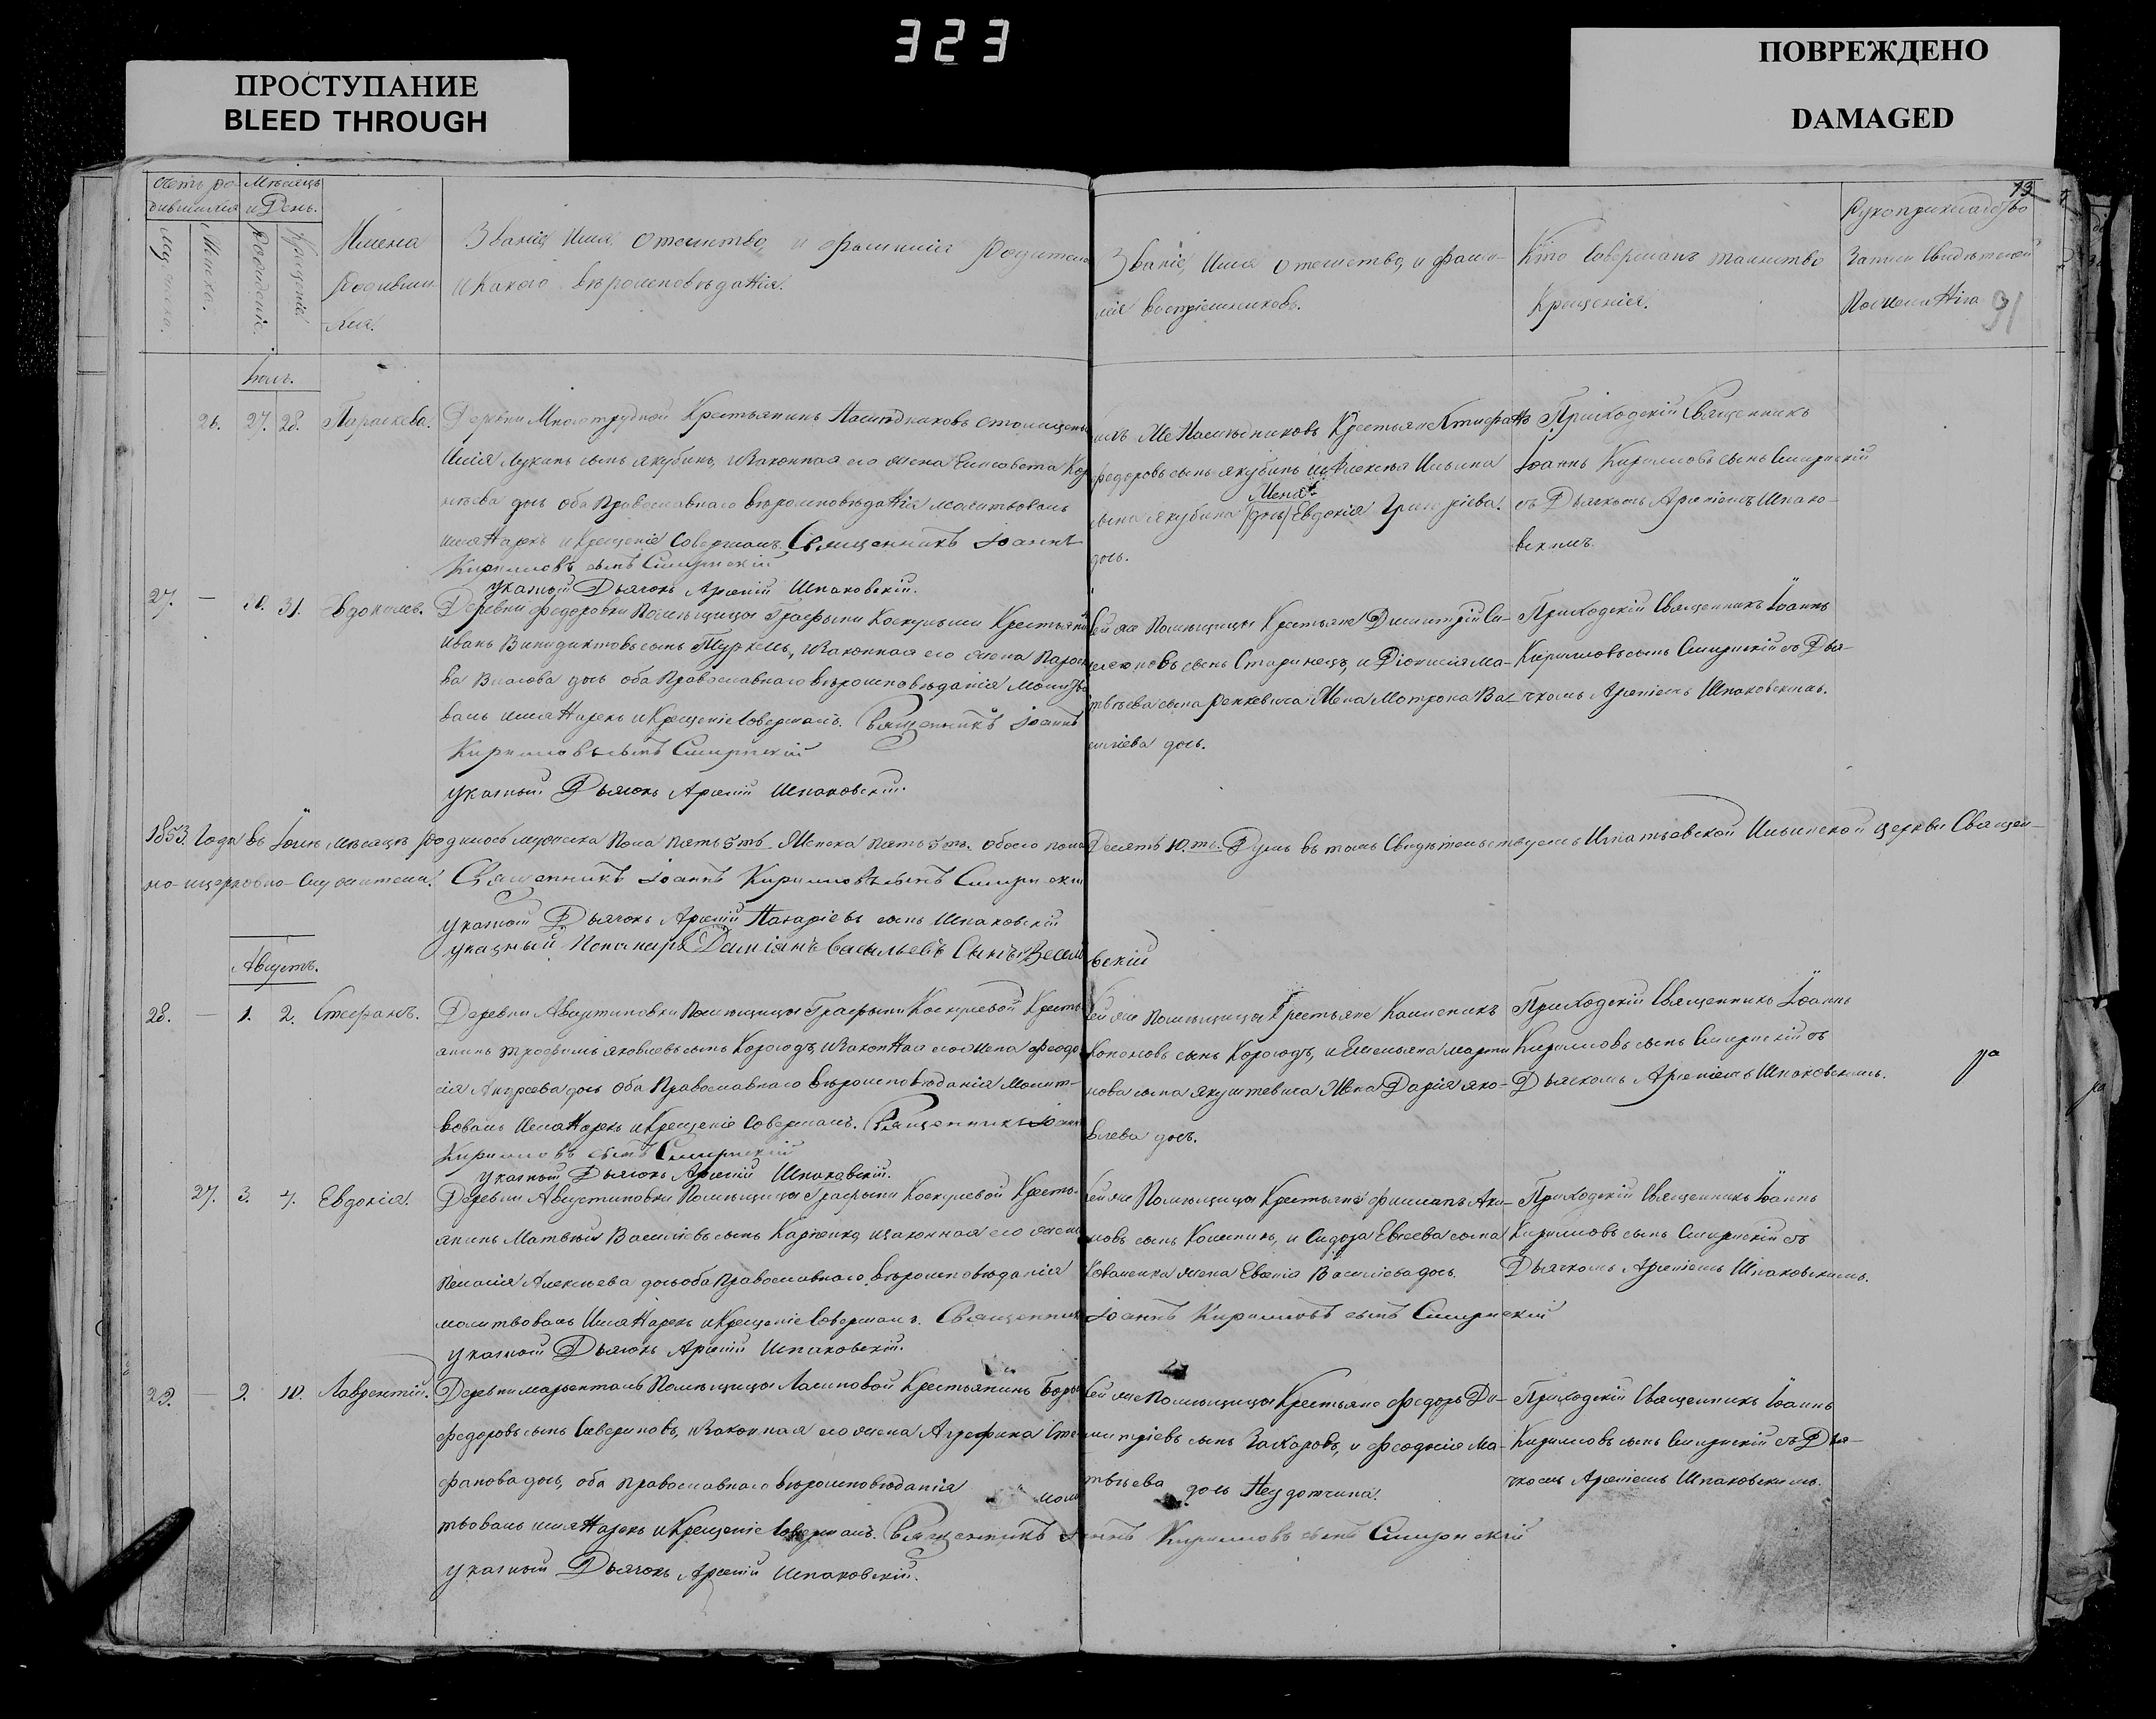 323
ПРОСТУПАНИЕ
BLEED THROUGH
ПОВРЕЖДЕНО
DAMAGED
13
91
Счетъ ро-
дившихся
Мѣсяцъ
и День.
Мужеска.
Женска.
Рожденіе
Крещеніе
Имена
Родивши
хся.
Званіе, Имя, Отечество, и фамилія Родителей
и какого вѣроисповѣданія.
Званіе, Имя Отечество, и фами-
лія воспріемниковъ.
Кто Совершалъ таинство
Крещенія.
Рукоприкладство
Записи Свидѣтелей
По желанію
Іюль.
26. 27. 28. Параскева.
Деревни Многотрудной Крестьянинъ Наслѣдниковъ
Лукинъ сынъ Якубинъ, и Законная его жена Елисавета Кор
нѣева дочь оба Православнаго вѣроисповѣданія молитвовалъ
имя Нарекъ и Крещеніе Совершалъ. Священникъ Іоаннъ
Кирилловъ сынъ Смирнскій
указный Дьячокъ Арсеній Шпаковскій.
Же Наслѣдниковъ Крестьяне
Федоровъ сынъ Якубинъ и Алексѣя Ильина
сына Якубина /дочь/ Жена Евдокія Григоріева.
дочь.
Приходскій Священникъ
Іоаннъ Кирилловъ сынъ Смирнскій
съ Дьячкомъ Арсеніемъ Шпако-
вскимъ.
27. — 30. 31. Евдокимъ.
Деревни Федоровки Помѣщицы Графыни Крестьянинъ
Иванъ Винидиктовъ сынъ и Законная его жена Параске
ва Власова дочь оба Православнаго вѣроисповѣданія Молитво
валъ имя Нарекъ и Крещеніе Совершалъ. Священникъ Іоаннъ
Кирилловъ сынъ Смирнскій
указный Дьячокъ Арсеній Шпаковскій.
Сей же Помѣщицы Крестьяне Димитрій Си-
меоновъ сынъ Старинецъ, и Діонисія Ма-
твѣева сына Жена Мотрона Ва-
силіева дочь.
Приходскій Священникъ Іоаннъ
Кирилловъ сынъ Смирнскій съ Дья-
чкомъ Арсеніемъ Шпаковскимъ.
1853. Года въ Іюлѣ мѣсяцѣ родилось мужеска Пола пять 5ть. Женска пять 5ть. обоего пола Десять 10.ть. Душъ въ томъ Свидѣтельствуемъ Игнатьевской Ильинской церкви Священ-
но-и церковно-Служители. Священникъ Іоаннъ Кирилловъ сынъ Смирнскій
указный Дьячокъ Арсеній Назаріевъ сынъ Шпаковскій
указный Пономарь Даміянъ Васильевъ Сынъ Веселовскій
Августъ.
28. — 1. 2. Стефанъ.
Деревни Августиновки Помѣщицы Графыни Крестья
янинъ Трофимъ Яковлевъ сынъ Корогодъ, и Законная его жена Феодо
сія Андреева дочь оба Православнаго вѣроисповѣданія Молит-
вовалъ Имя Нарекъ и Крещеніе Совершалъ. Священникъ Іоаннъ
Кирилловъ сынъ Смирнскій
указный Дьячокъ Арсеній Шпаковскій.
Сей же Помѣщицы Крестьяне
Кононовъ сынъ Корогодъ, и Емельяна Марти
нова сына Якуштевича Жена Дарія Яко-
влева дочь.
Приходскій Священникъ Іоаннъ
Кирилловъ сынъ Смирнскій съ
Дьячкомъ Арсеніемъ Шпаковскимъ.
27. 3. 4. Евдокія.
Деревни Августиновки Помѣщицы Графыни Кресть-
янинъ Матвѣй Василіевъ сынъ Карпенко, и законная его жена
Пелагія Алексѣева дочь оба Православнаго вѣроисповѣданія
молитвовалъ Имя Нарекъ и Крещеніе Совершалъ. Священникъ Іоаннъ Кирилловъ сынъ Смирнскій
указный Дьячокъ Арсеній Шпаковскій.
Сей же Помѣщицы Крестьяне Филипъ Аки-
мовъ сынъ и Сидора Евсеева сына
Коваленка жена Василіева дочь.
Приходскій Священникъ Іоаннъ
Кирилловъ сынъ Смирнскій съ
Дьячкомъ Арсеніемъ Шпаковскимъ.
29. — 9. 10. Лаврентій.
Деревни Марьенталь Помѣщицы Крестьянинъ
Федоровъ сынъ Севериновъ, и Законная его жена Агрефина Сте
фанова дочь, оба Православнаго вѣроисповѣданія моли
твовалъ имя Нарекъ и Крещеніе Совершалъ. Священникъ Іоаннъ Кирилловъ сынъ Смирнскій
указный Дьячокъ Арсеній Шпаковскій.
Сей же Помѣщицы Крестьяне Федоръ Ди-
митріевъ сынъ Захаровъ, и Феодосія Ма-
твѣева дочь
Приходскій Священникъ Іоаннъ
Кирилловъ сынъ Смирнскій съ Дья-
чкомъ Арсеніемъ Шпаковскимъ.